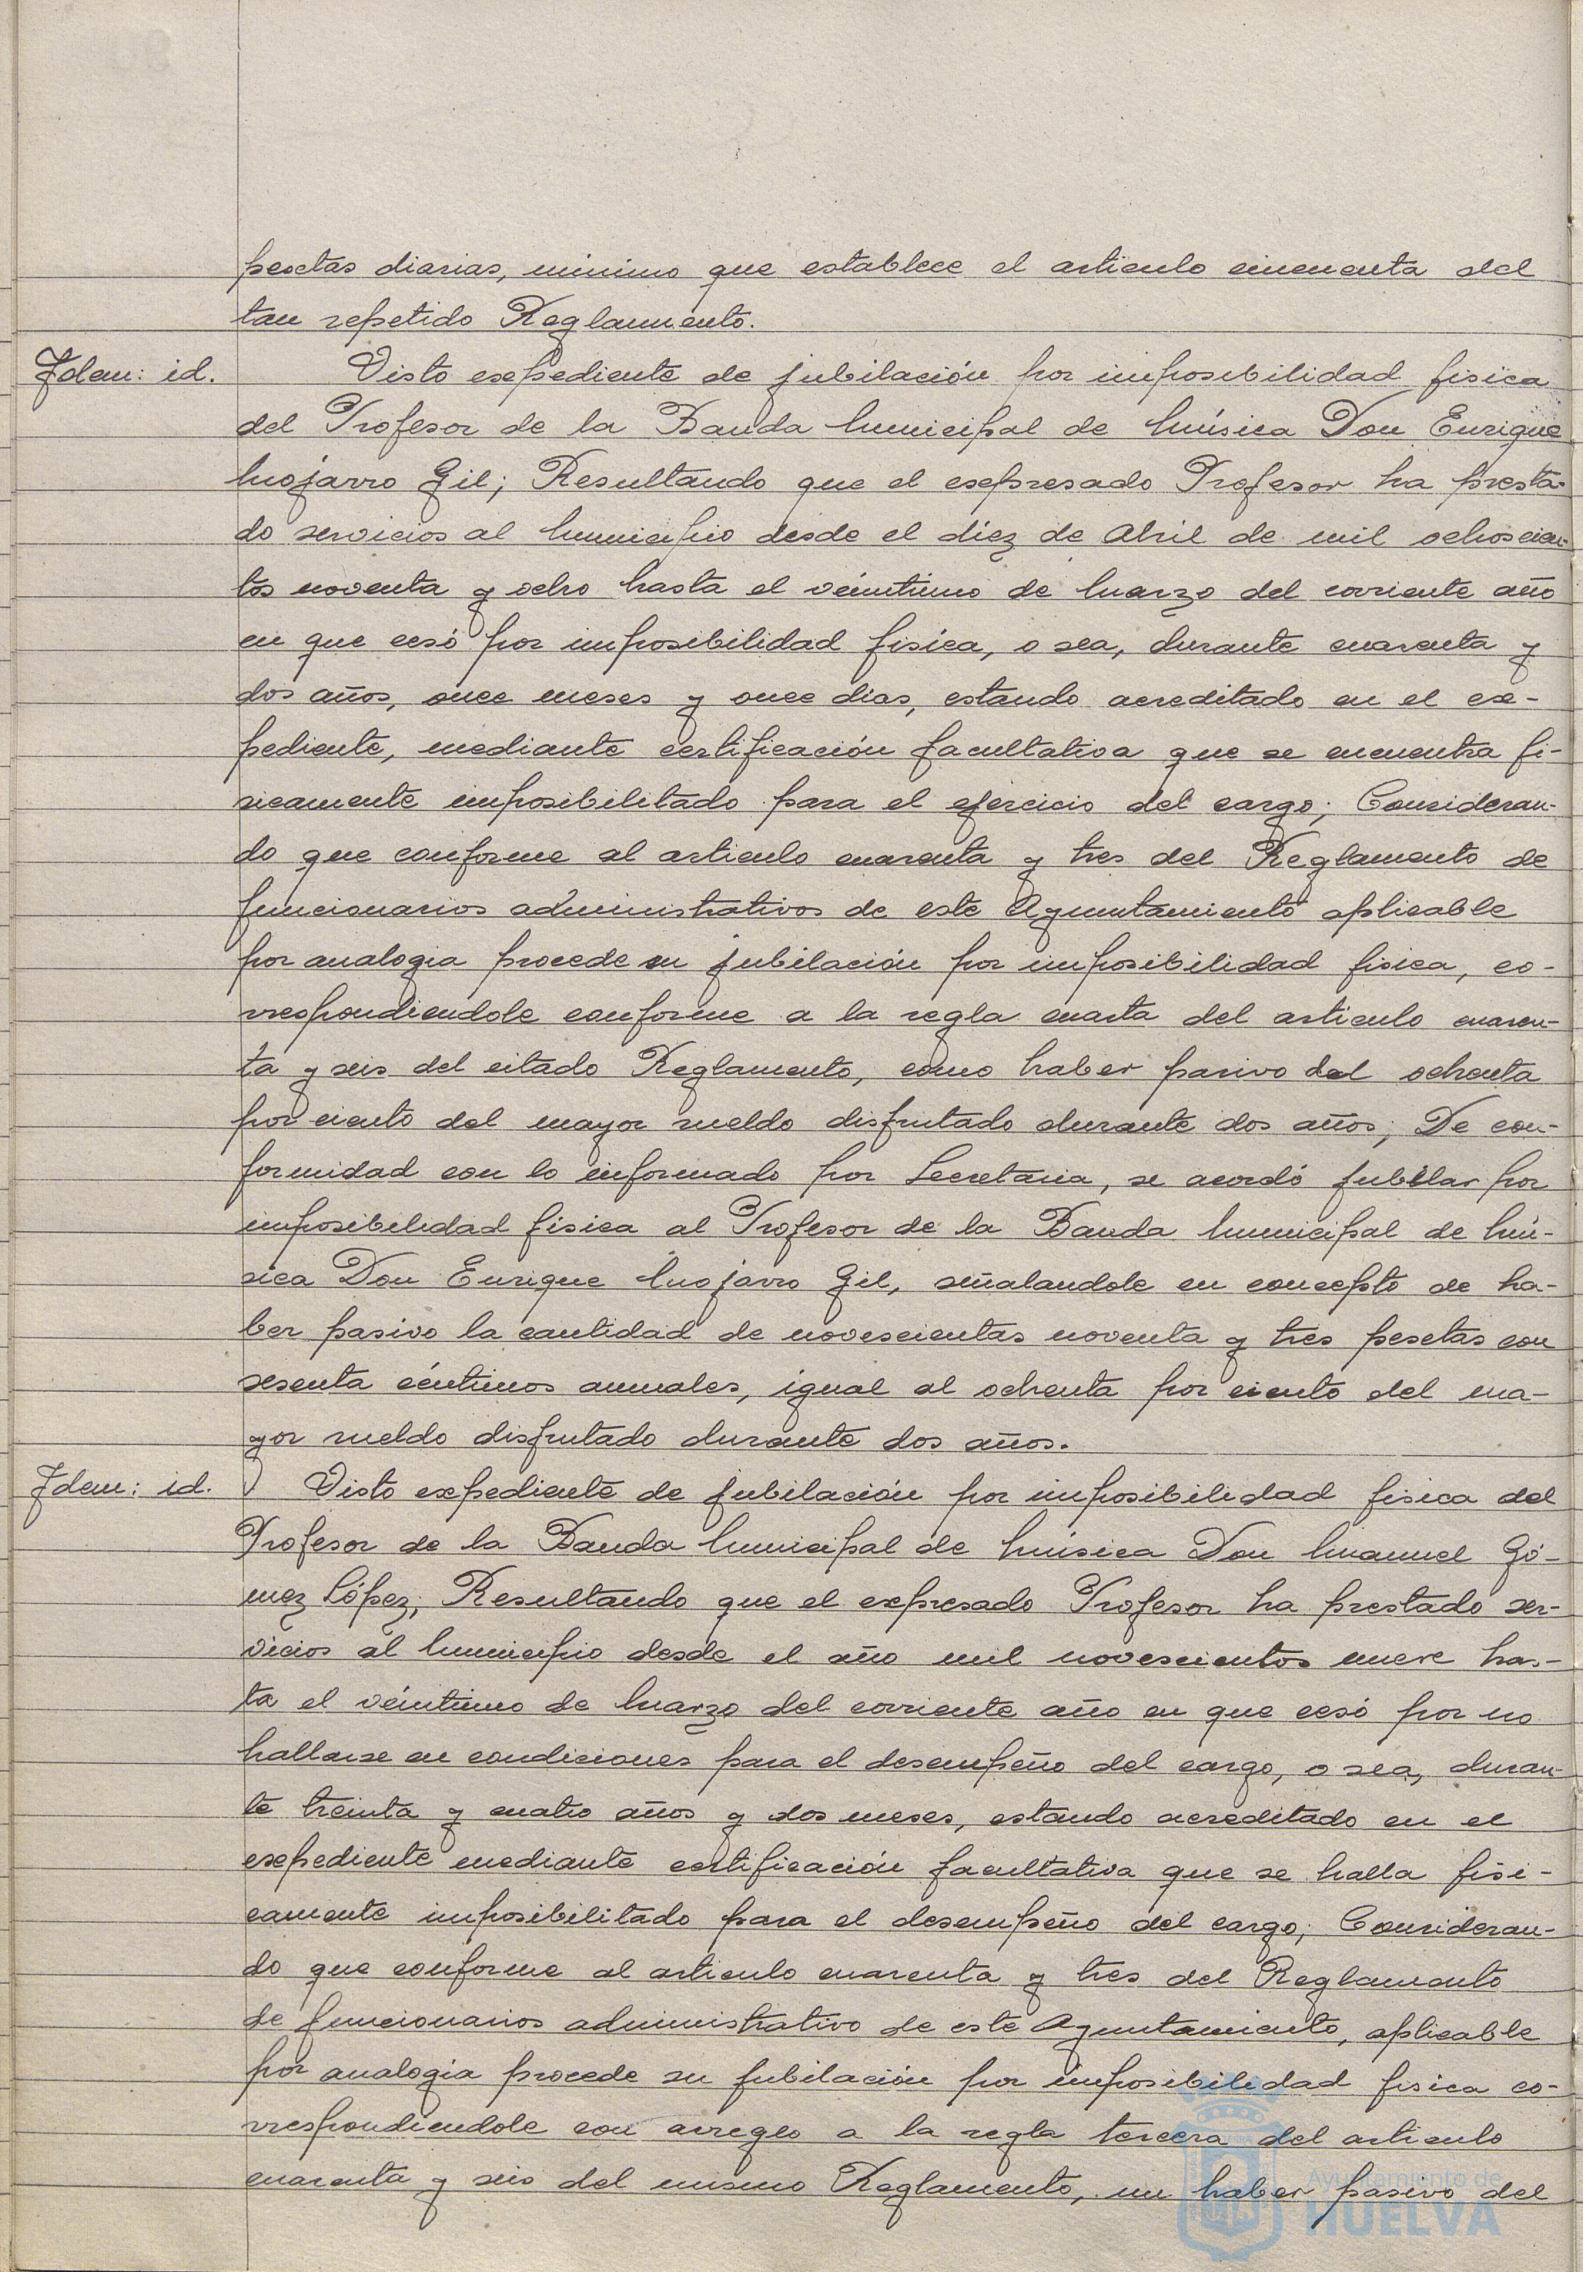 pesetas diarias, mínimo que establece el articulo cincuenta del
tan repetido Reglamento.
Idem: id.
Visto expediente de jubilación por imposibilidad fisica
del Profesor de la Banda Municipal de Música Don Enrique
Mojarro Gil; Resultando que el expresado Profesor ha presta-
do servicios al Municipio desde el diez de Abril de mil ochoscien-
tos noventa y ocho hasta el veintiuno de Marzo del corriente año
en que cesó por imposibilidad física, o sea, durante cuarenta y
dos años, once meses y once dias, estando acreditado en el ex-
pediente, mediante certificación facultativa que se encuentra fi-
sicamente imposibilitado para el ejercicio del cargo; Consideran-
do que conforme al articulo cuarenta y tres del Reglamento de
funcionarios administrativos de este Ayuntamiento aplicable
por analogia procede su jubilación por imposibilidad fisica, co-
rrespondiendole conforme a la regla cuarta del articulo cuaren-
ta y seis del citado Reglamento, como haber pasivo del ochenta
por ciento del mayor sueldo disfrutado durante dos años; De con-
formidad con lo informado por Secretaria, se acordó jubilar por
imposibilidad física al Profesor de la Banda Municipal de Mú-
sica Don Enrique Mojarro Gil, señalandole en concepto de ha-
ber pasivo la cantidad de novescientas noventa y tres pesetas con
sesenta céntimos anuales, igual al ochenta por ciento del ma-
yor sueldo disfrutado durante dos años.
Idem: id.
Visto expediente de jubilación por imposibilidad fisica del
Profesor de la Banda Municipal de Música Don Manuel Gó-
mez López; Resultando que el expresado Profesor ha prestado ser-
vicios al Municipio desde el año mil novescientos nueve has-
ta el veintiuno de Marzo del corriente año en que cesó por no
hallarse en condiciones para el desempeño del cargo, o sea, duran-
te treinta y cuatro años y dos meses, estando acreditado en el
expediente mediante certificación facultativa que se halla físi-
camente imposibilitado para el desempeño del cargo; Consideran-
do que conforme al articulo cuarenta y tres del Reglamento
de funcionarios administrativo de este Ayuntamiento, aplicable
por analogia procede su jubilación por imposibilidad fisica co-
rrespondiendole con arreglo a la regla tercera del articulo
cuarenta y seis del mismo Reglamento, un haber pasivo del
Ayuntamiento de
HUELVA